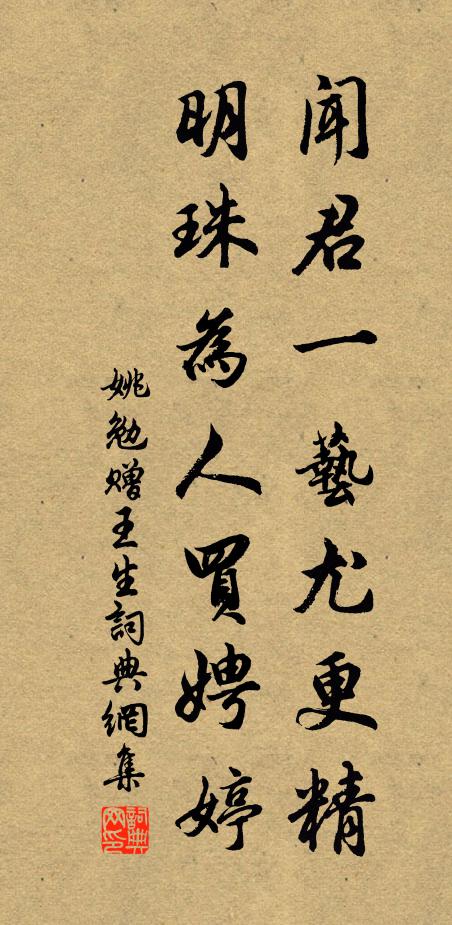 聞君一藝尤更精
明珠為人買娉婷
姚勉贈王生詞典網集
詞典網印